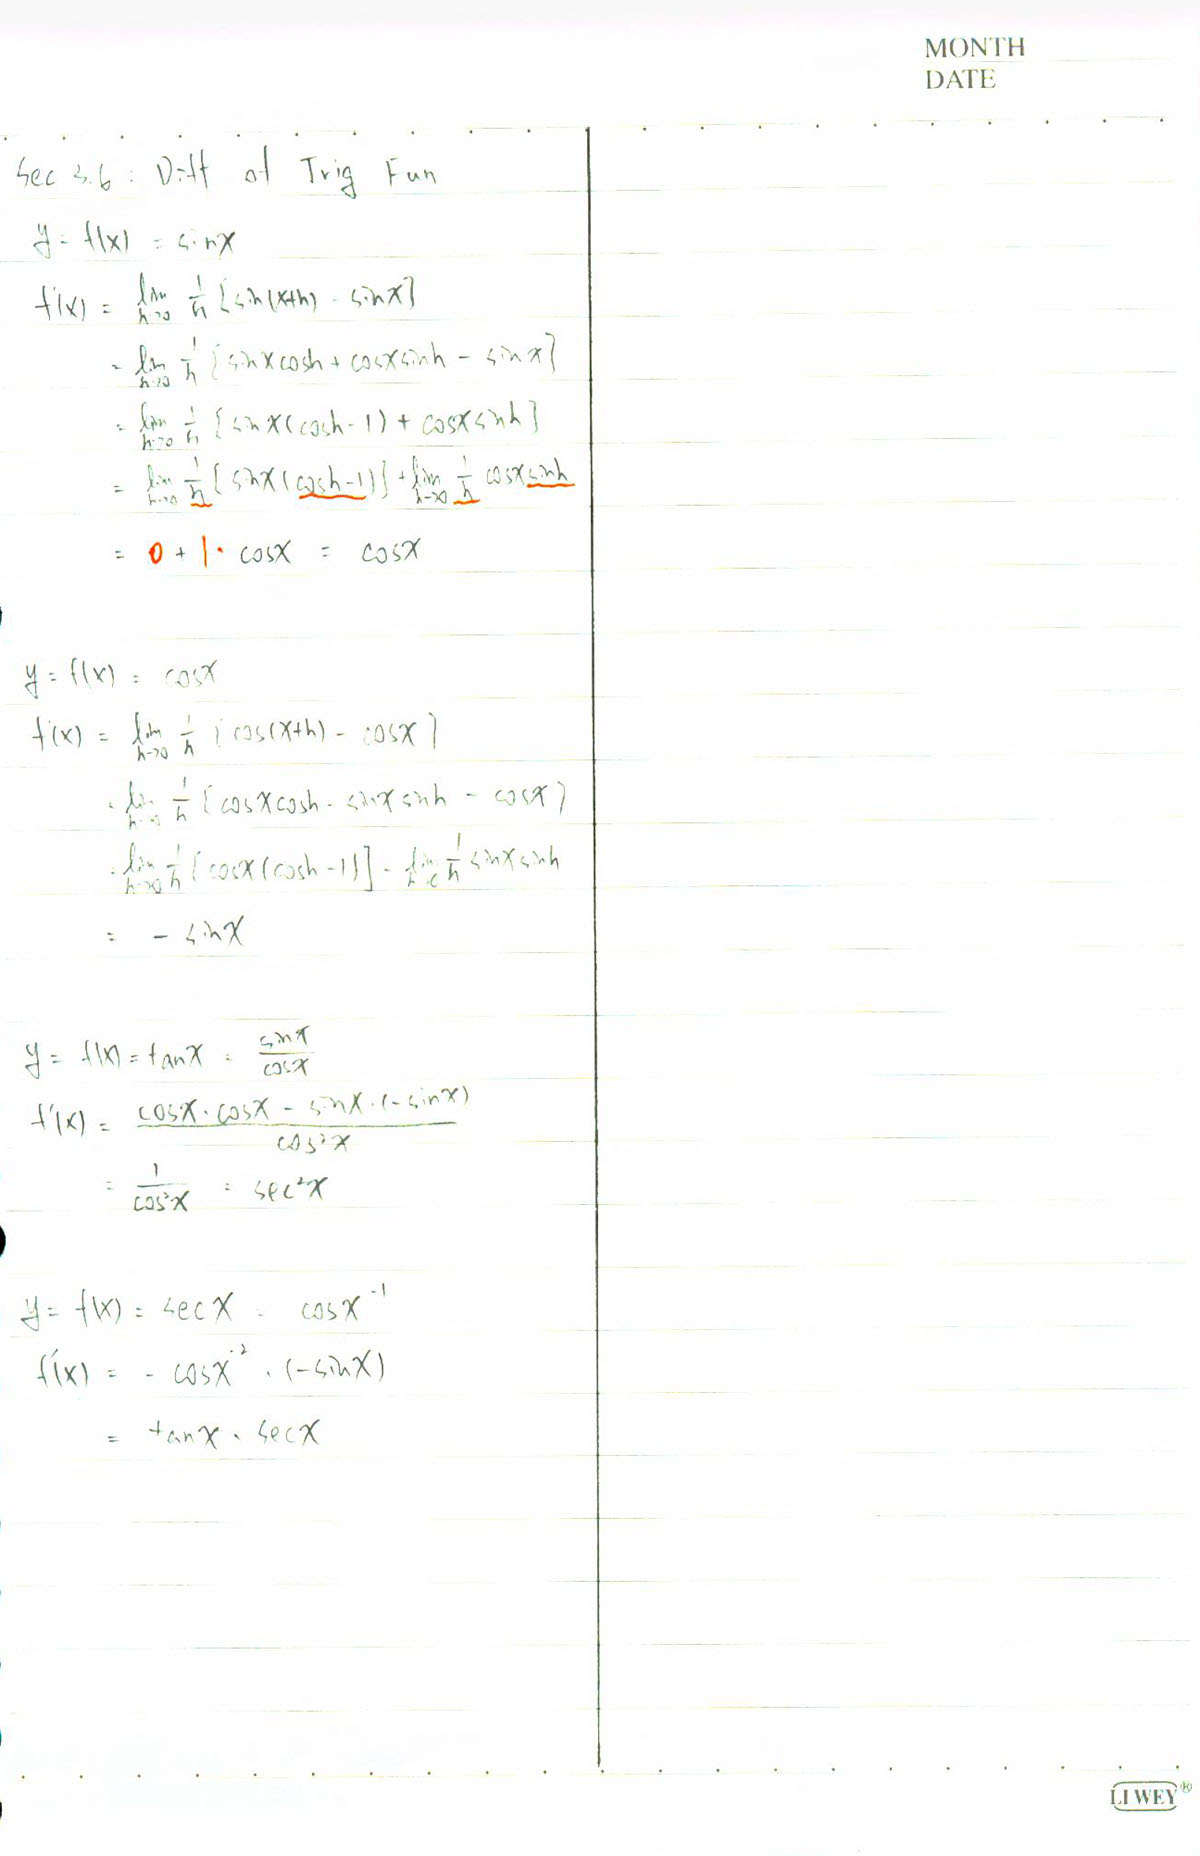 MONTH
DATE
Sec 3.6 : Diff of Trig Fun
y = f(x) = sinx
f'(x) = lim h→0 1/h [sin(x+h) - sinx]
= lim h→0 1/h [sinxcosh + cosxsinh - sinx]
= lim h→0 1/h [sinx(cosh-1) + cosxsinh]
= lim h→0 1/h [sinx(cosh-1)] + lim h→0 1/h cosxsinh
= 0 + 1· cosx = cosx
y = f(x) = cosx
f'(x) = lim h→0 1/h [cos(x+h) - cosx]
= lim h→0 1/h [cosxcosh - sinxsinh - cosx]
= lim h→0 1/h [cosx(cosh-1)] - lim h→0 1/h sinxsinh
= - sinx
y = f(x) = tanx = sinx/cosx
f'(x) = (cosx·cosx - sinx·(-sinx))/cos²x
= 1/cos²x = sec²x
y = f(x) = secx = cosx⁻¹
f'(x) = - cosx⁻² · (-sinx)
= tanx · secx
LI WEY ®